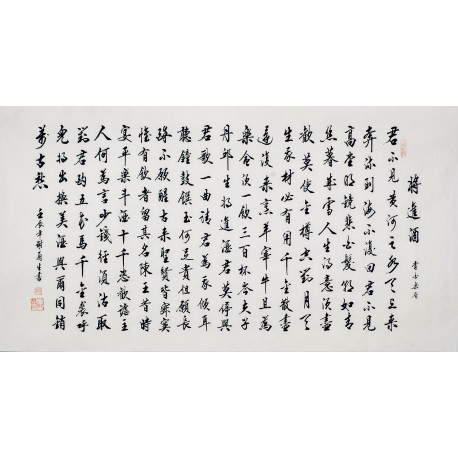 將進酒
君不見黃河之水天上來
奔流到海不復回君不見
高堂明鏡悲白髮朝如青
絲暮成雪人生得意須盡
歡莫使金樽空對月天
生我材必有用千金散盡
還復來烹羊宰牛且爲
樂會須一飲三百杯岑夫子
丹邱生將進酒君莫停與
君歌一曲請君爲我傾耳
聽鐘鼓饌玉何足貴但願長
醉不願醒古來聖賢皆寂寞
惟有飲者留其名陳王昔時
宴平樂斗酒十千恣歡謔主
人何爲言少錢徑須沽取
對君酌五花馬千金裘呼
兒將出換美酒與爾同銷
萬古愁
壬辰年生書